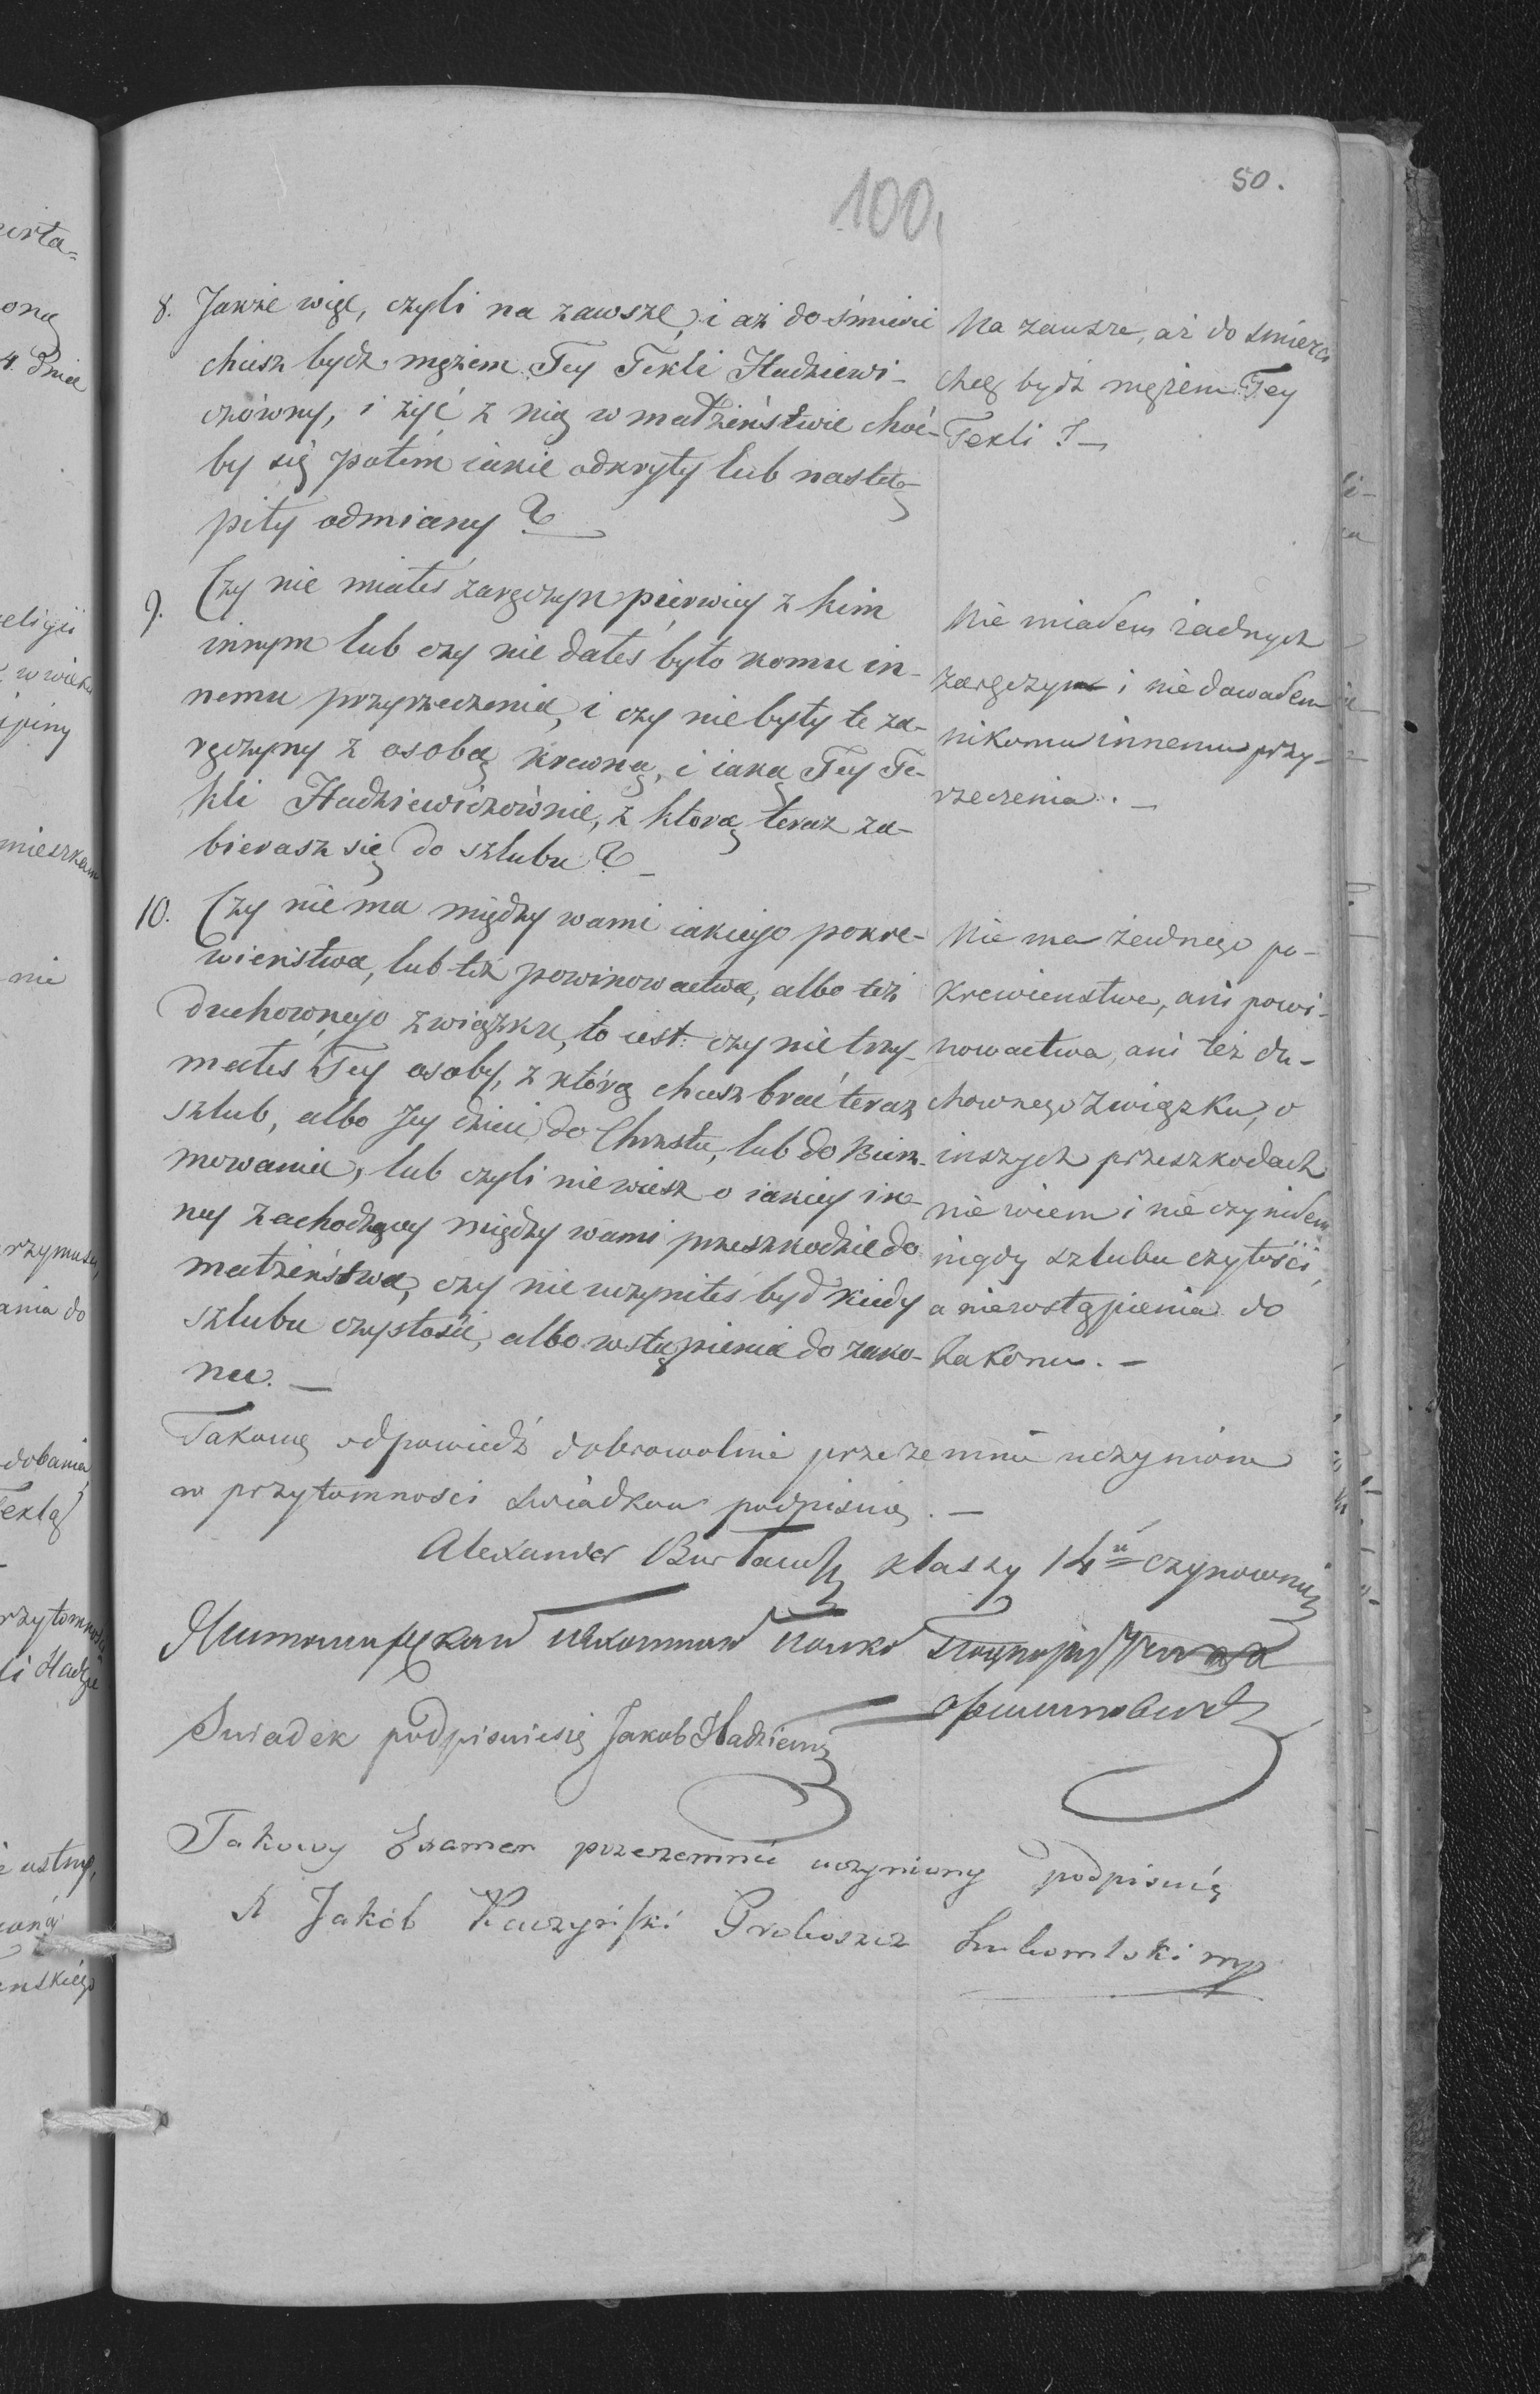 50.
100.
8. Jakże więc, czyli na zawsze, i aż do śmierci
chcesz bydź mężem Tey Tekli Hadziewi-
czówny, i żyć z nią w małżeństwie choć-
by się potem iakie odkryły lub nastę-
piły odmiany?
Na zawsze, aż do śmierci
chcę bydź mężem Tey
Tekli
9. Czy nie miałeś zaręczyn pierwiey z kim
innym lub czy nie dałeś było komu in-
nemu przyrzeczenia, i czy nie były te za-
ręczyny z osobą krewną, i iaką Tey Te-
kli Hadziewiczównie, z którą teraz za-
bierasz się do szlubu?
Nie miałem żadnych
zaręczyn i nie dawałem
nikomu innemu przy-
rzeczenia.
10. Czy nie ma między wami iakiego pokre-
wieństwa, lub też powinowactwa, albo też
duchownego związku, to iest: czy nie trzy-
małeś Tey osoby, z którą chcesz brać teraz
szlub, albo Jey dzieci do Chrztu, lub do Bierz-
mowania, lub czyli nie wiesz o iakiey in-
ney zachodzącey między wami przeszkodzie do
małżeństwa, czy nie uczyniłeś był kiedy
szlubu czystości, albo wstąpienia do zako-
nu.
Nie ma żadnego po-
krewienstwa, ani powi-
nowactwa, ani też du-
chownego związku, o
inszych przeszkodach
nie wiem i nie czyniłem
nigdy szlubu czytości,
a niewstąpienia do
Zakonu.
Takową odpowiedź dobrowolnie przezemnie uczynioną
w przytomności świadków podpisuię.
Alexander klassy 14 czynownik
Swiadek podpisuiesię Jakob Hadziewicz
Takowy Examen przezemnie uczyniony podpisuię
X Jakób Kaczyński Proboszcz Lubomlski mp